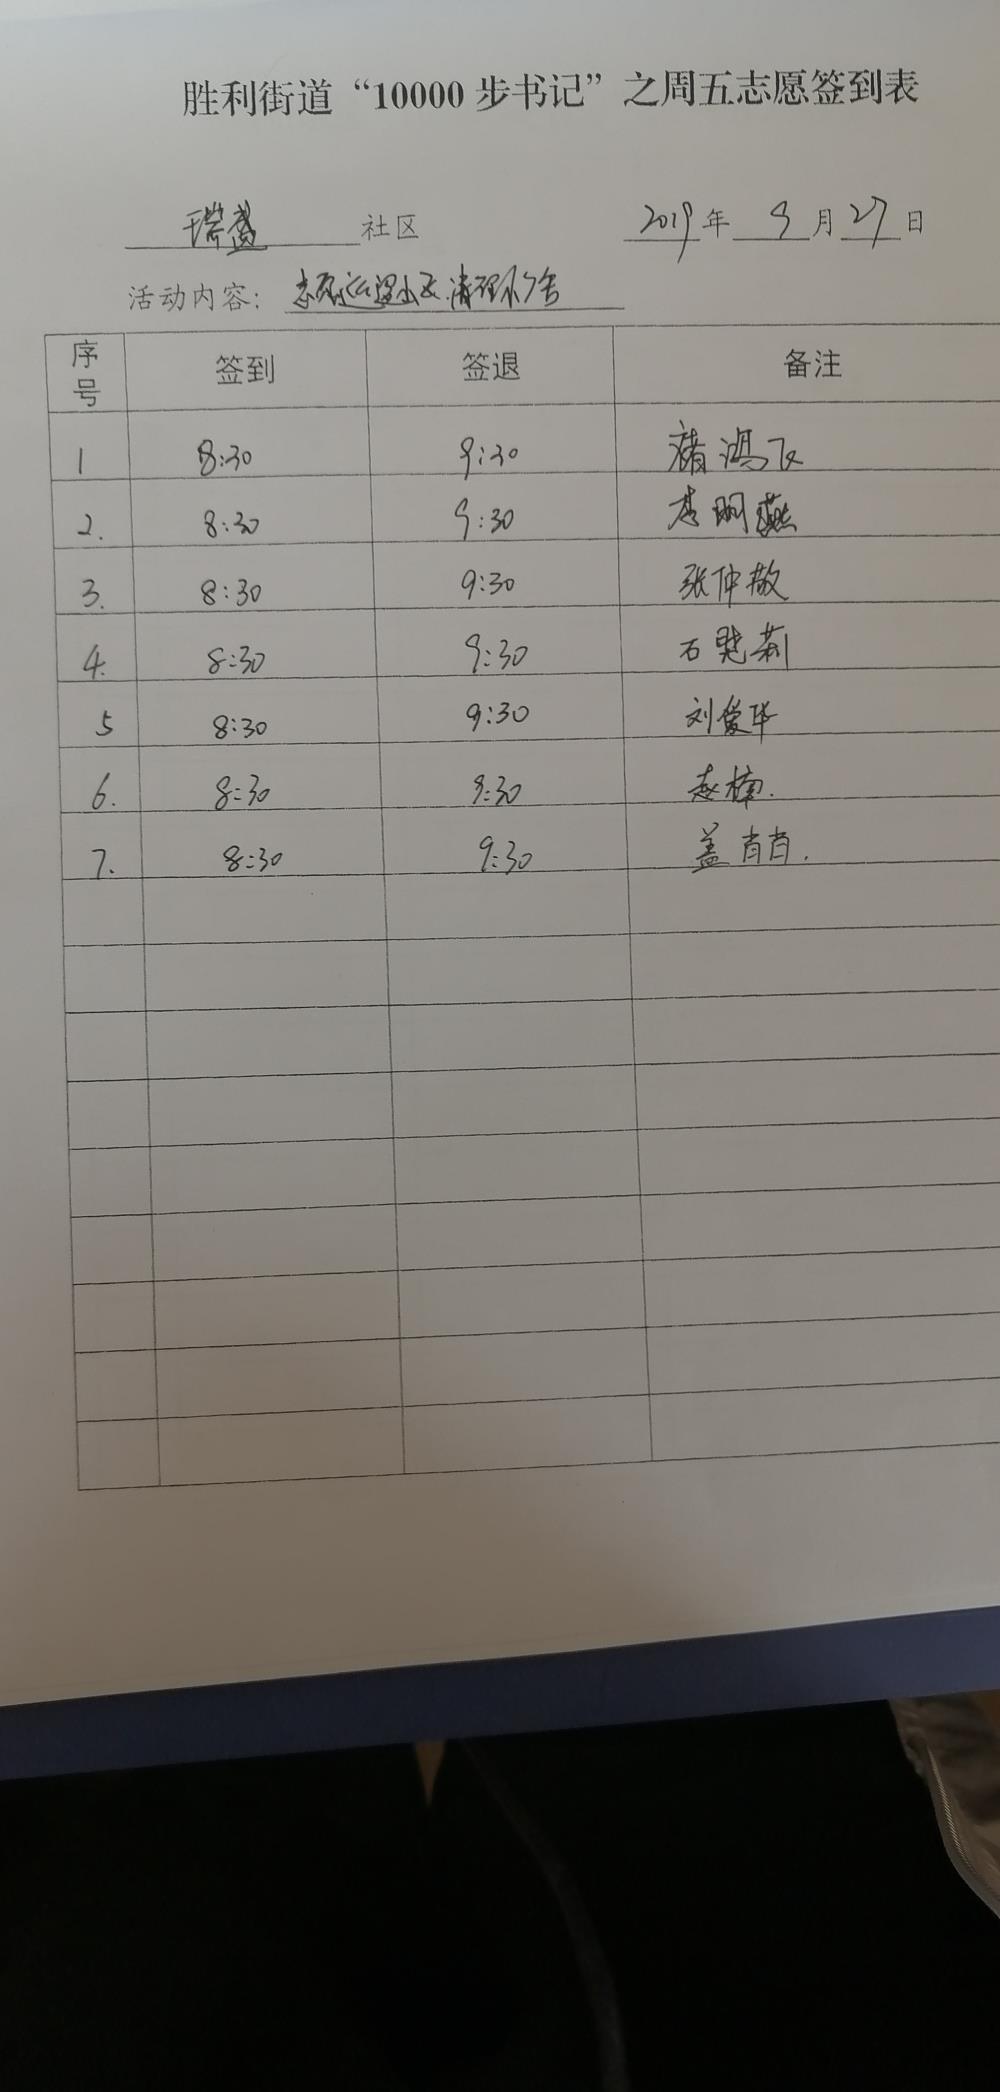 胜利街道“10000步书记”之周五志愿签到表
瑞盛 社区 2019年 9月27日
活动内容：志愿 清理小广告
序号 签到 签退 备注
1 8:30 9:30 褚鸿飞
2. 8:30 9:30 李明燕
3. 8:30 9:30 张仲敬
4. 8:30 9:30 石 莉
5 8:30 9:30 刘爱华
6. 8:30 9:30 赵楠.
7. 8:30 9:30 盖肖肖.